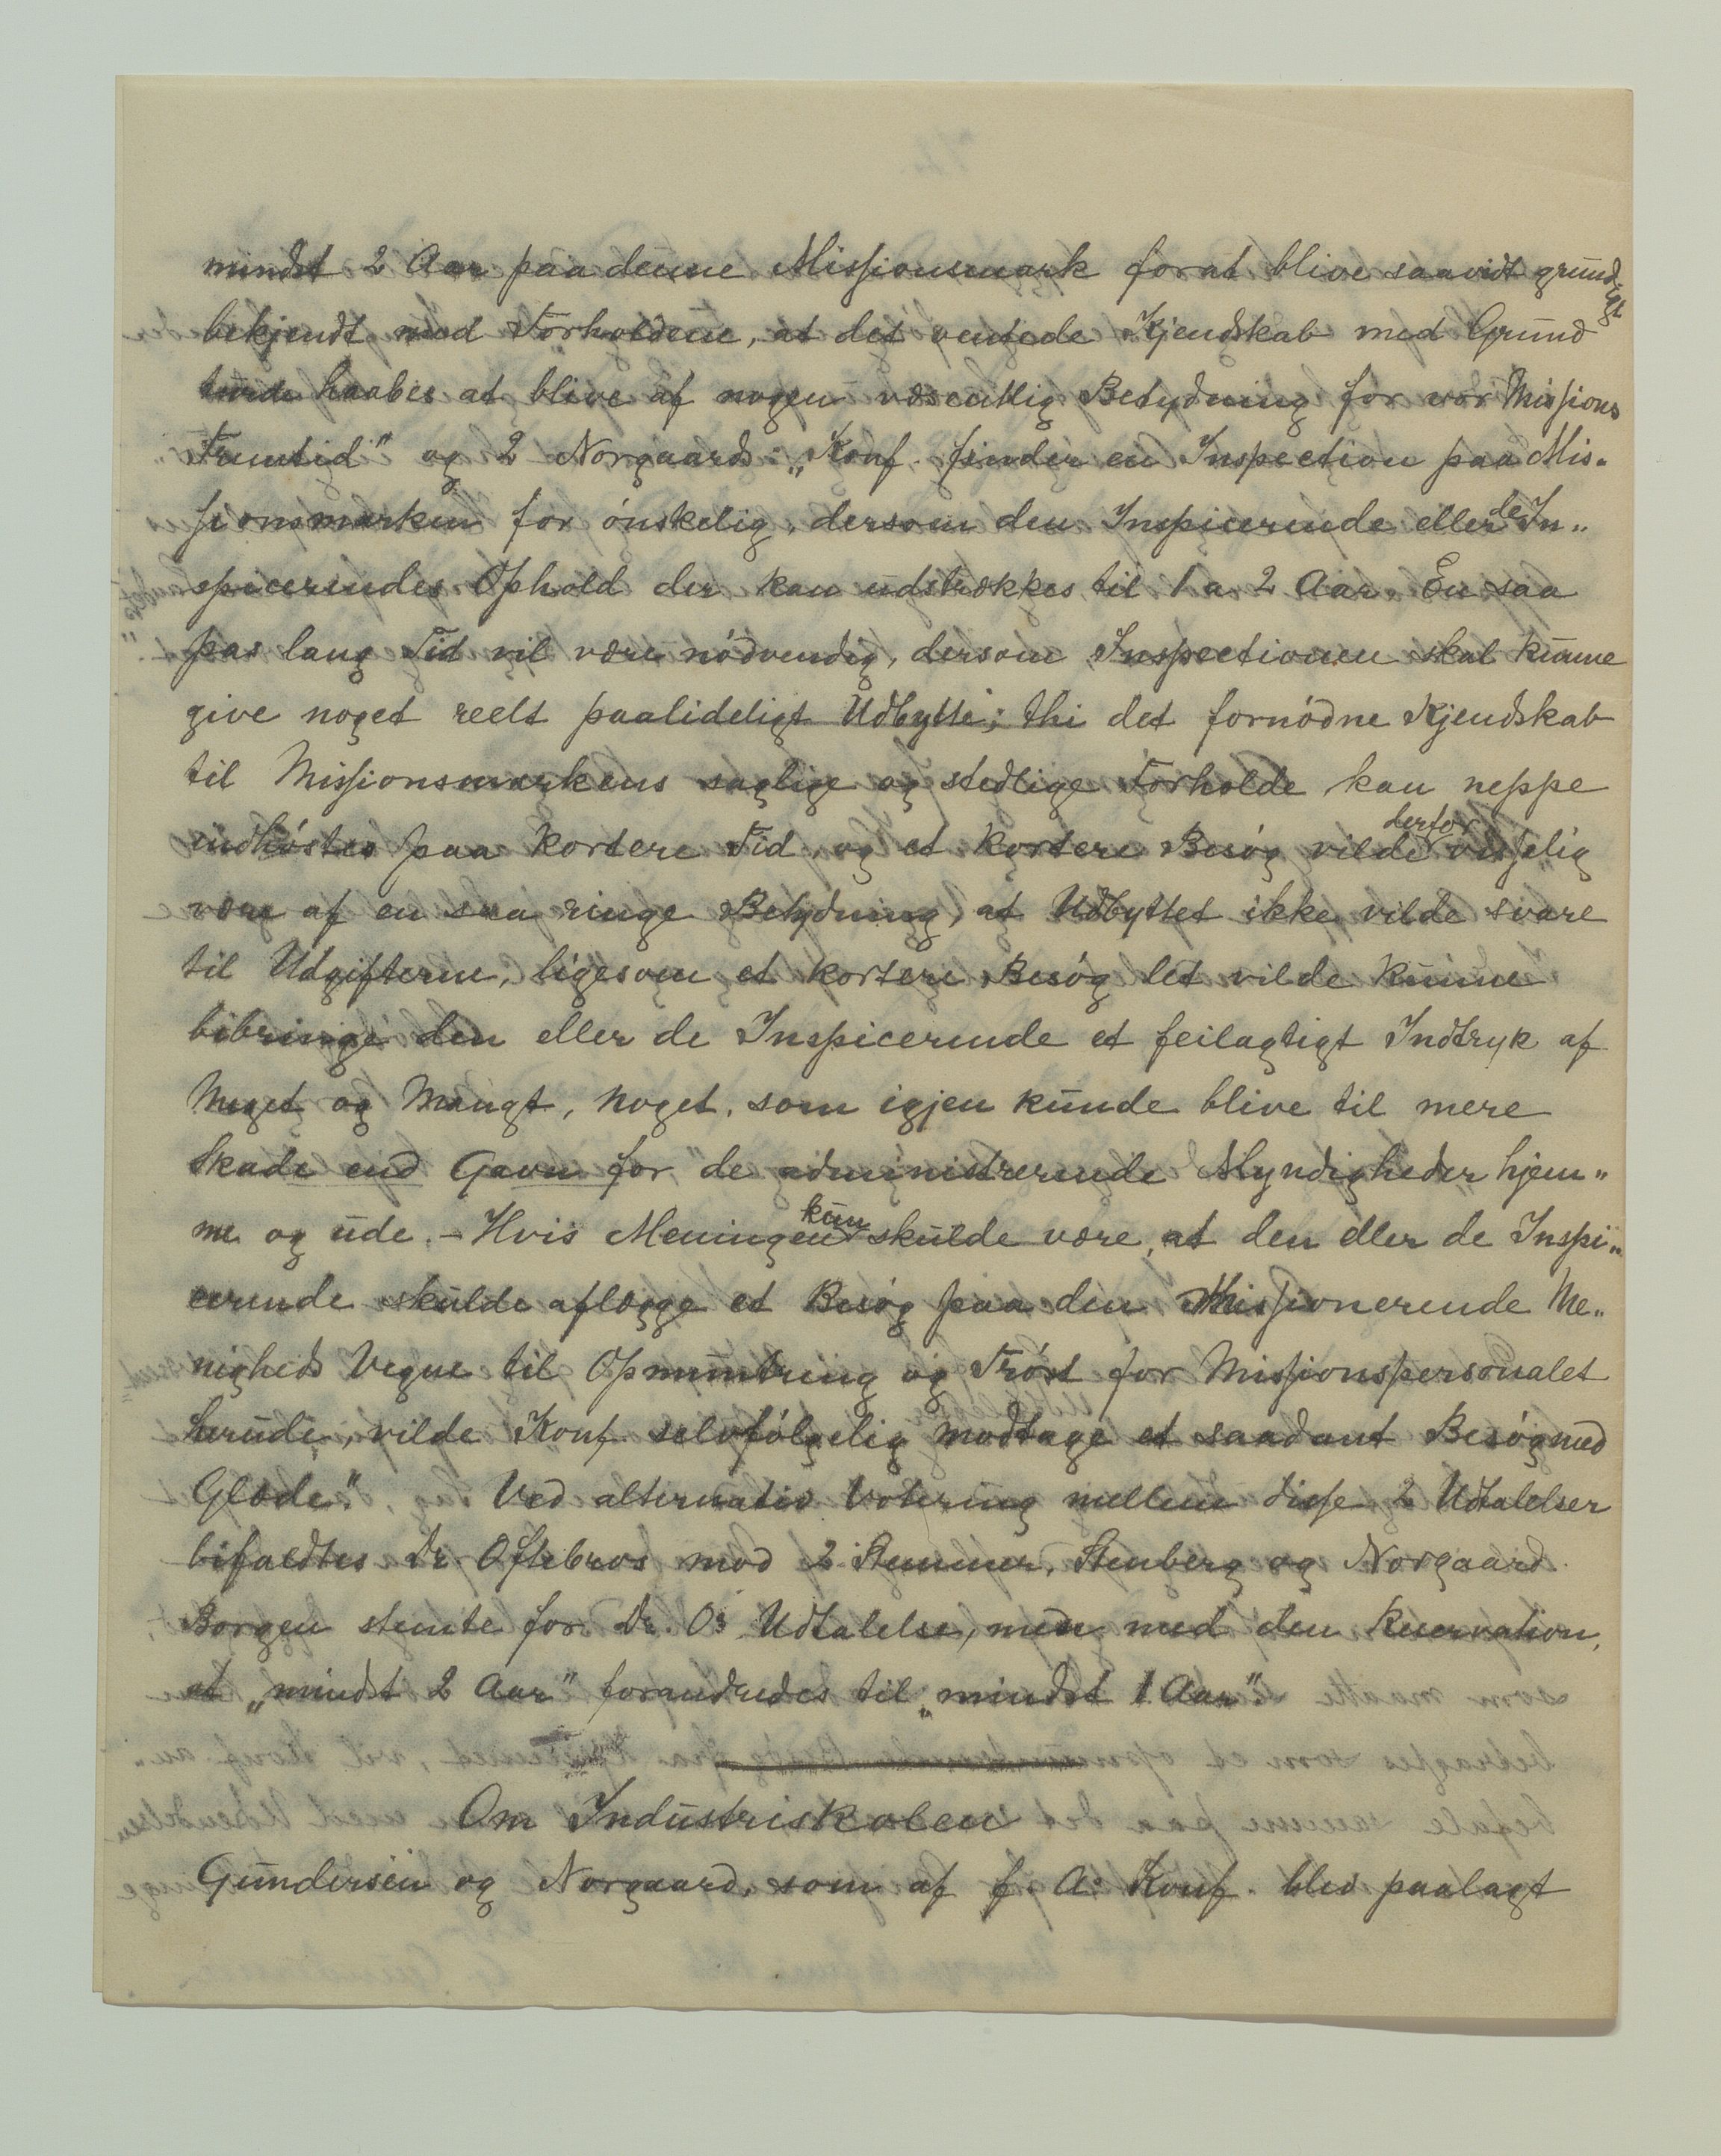 mindst 2 Aar paa denne Missionsmark forat blive saavidt grundigt
bekjendt med Forholdene, at det ventede Kjendskab med Grund
turde haabes at blive af nogen væsentlig Betydning for vor Missions
Fremtid" og 2 Norgaards: „Konf. finder en Inspection paa Mis„
sionsmarken for ónskelig, dersom den Inspicerende eller de In„
spicerendes Ophold der kan udstrækkes til 1 a 2 Aar. En saa
pas lang Tid vil være nódvendig, dersom Inspectionen skal kunne
give noget reelt paalideligt Udbytte; thi det fornódne Kjendskab
til Missionsmarkens saglige og stedlige Forholde kan neppe
indhóstes paa kortere Tid, og et kortere Besóg vilde derfor visselig
være af en saa ringe Betydning, at Udbyttet ikke vilde svare
til Udgifterne, ligesom et kortere Besóg let vilde kunne
bibringe den eller de Inspicerende et feilagtigt Indtryk af
Meget og Mangt, noget, som igjen kunde blive til mere
Skade end Gavn for de administrerende Myndigheder hjem„
me og ude. – Hvis Meningen kun skulde være, at den eller de Inspi„
cerende skulde aflægge et Besóg paa den Missionerende Me„
nigheds Vegne til Opmuntring og Tróst for Missionspersonalet
herude, vilde Konf. selvfólgelig modtage et saadant Besóg med
Glæde". Ved alternativ Votering mellem disse 2 Udtalelser
bifaldtes Dr Oftebros mod 2 Stemmer, Stenberg og Norgaard.
Borgen stemte for Dr. O's Udtalelse, men med den Reservation,
at „mindst 2 Aar" forandredes til „mindst 1 Aar".
Om Industriskolen
Gundersen og Norgaard, som af f. A: Konf. blev paalagt